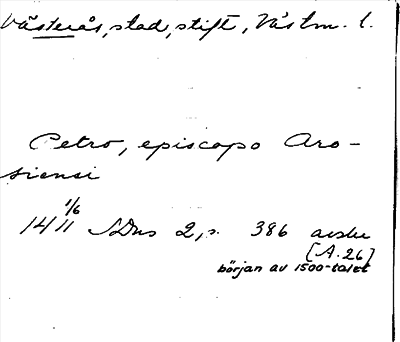 Västerås, stad, stift, Västm. l.
Petro, episcopo Aro-
siensi
14 1/6 11 SDns 2, s. 386 avskr
[A. 26]
början av 1500-talet